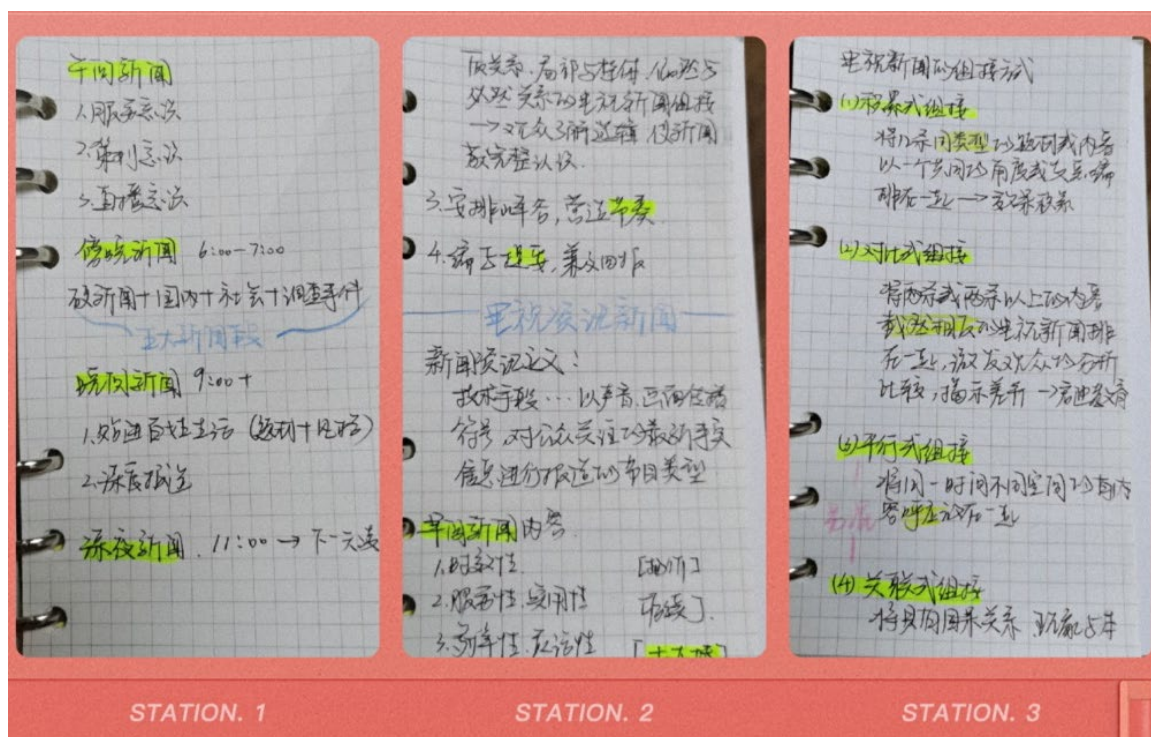 午间新闻
1.服务意识
2.策划意识
3.直播意识
傍晚新闻 6:00-7:00
硬新闻+国内+社会+调查事件
三大新闻段
晚间新闻 9:00+
1.贴近百姓生活
2.深度报道
深夜新闻. 11:00→下一天凌
果关系.局部与整体.偶然与
必然关系的电视新闻组接
→观众了解逻辑 使新闻
完整认识.
3.安排峰谷,营造节奏
4.编写提要,兼顾回报
电视资讯新闻
新闻资讯定义:
技术手段…以声音.画面
符号,对公众关注的最新事实
信息进行报道的节目类型
早间新闻内容.
1.时效性.
2.服务性.实用性
3.
电视新闻的组接方式
(1)积累式组接
将几条同类型的题材或内容
以一个共同的角度或交点.编
排在一起→
(2)对比式组接
将两条或两条以上的内容
截然相反的电视新闻排
在一起,激发观众的分析
比较,揭示差异→启迪教育
(3)平行式组接
将同一时间不同空间的有内
容呼应放在一起
(4)关联式组接
将具有因果关系
STATION. 1
STATION. 2
STATION. 3